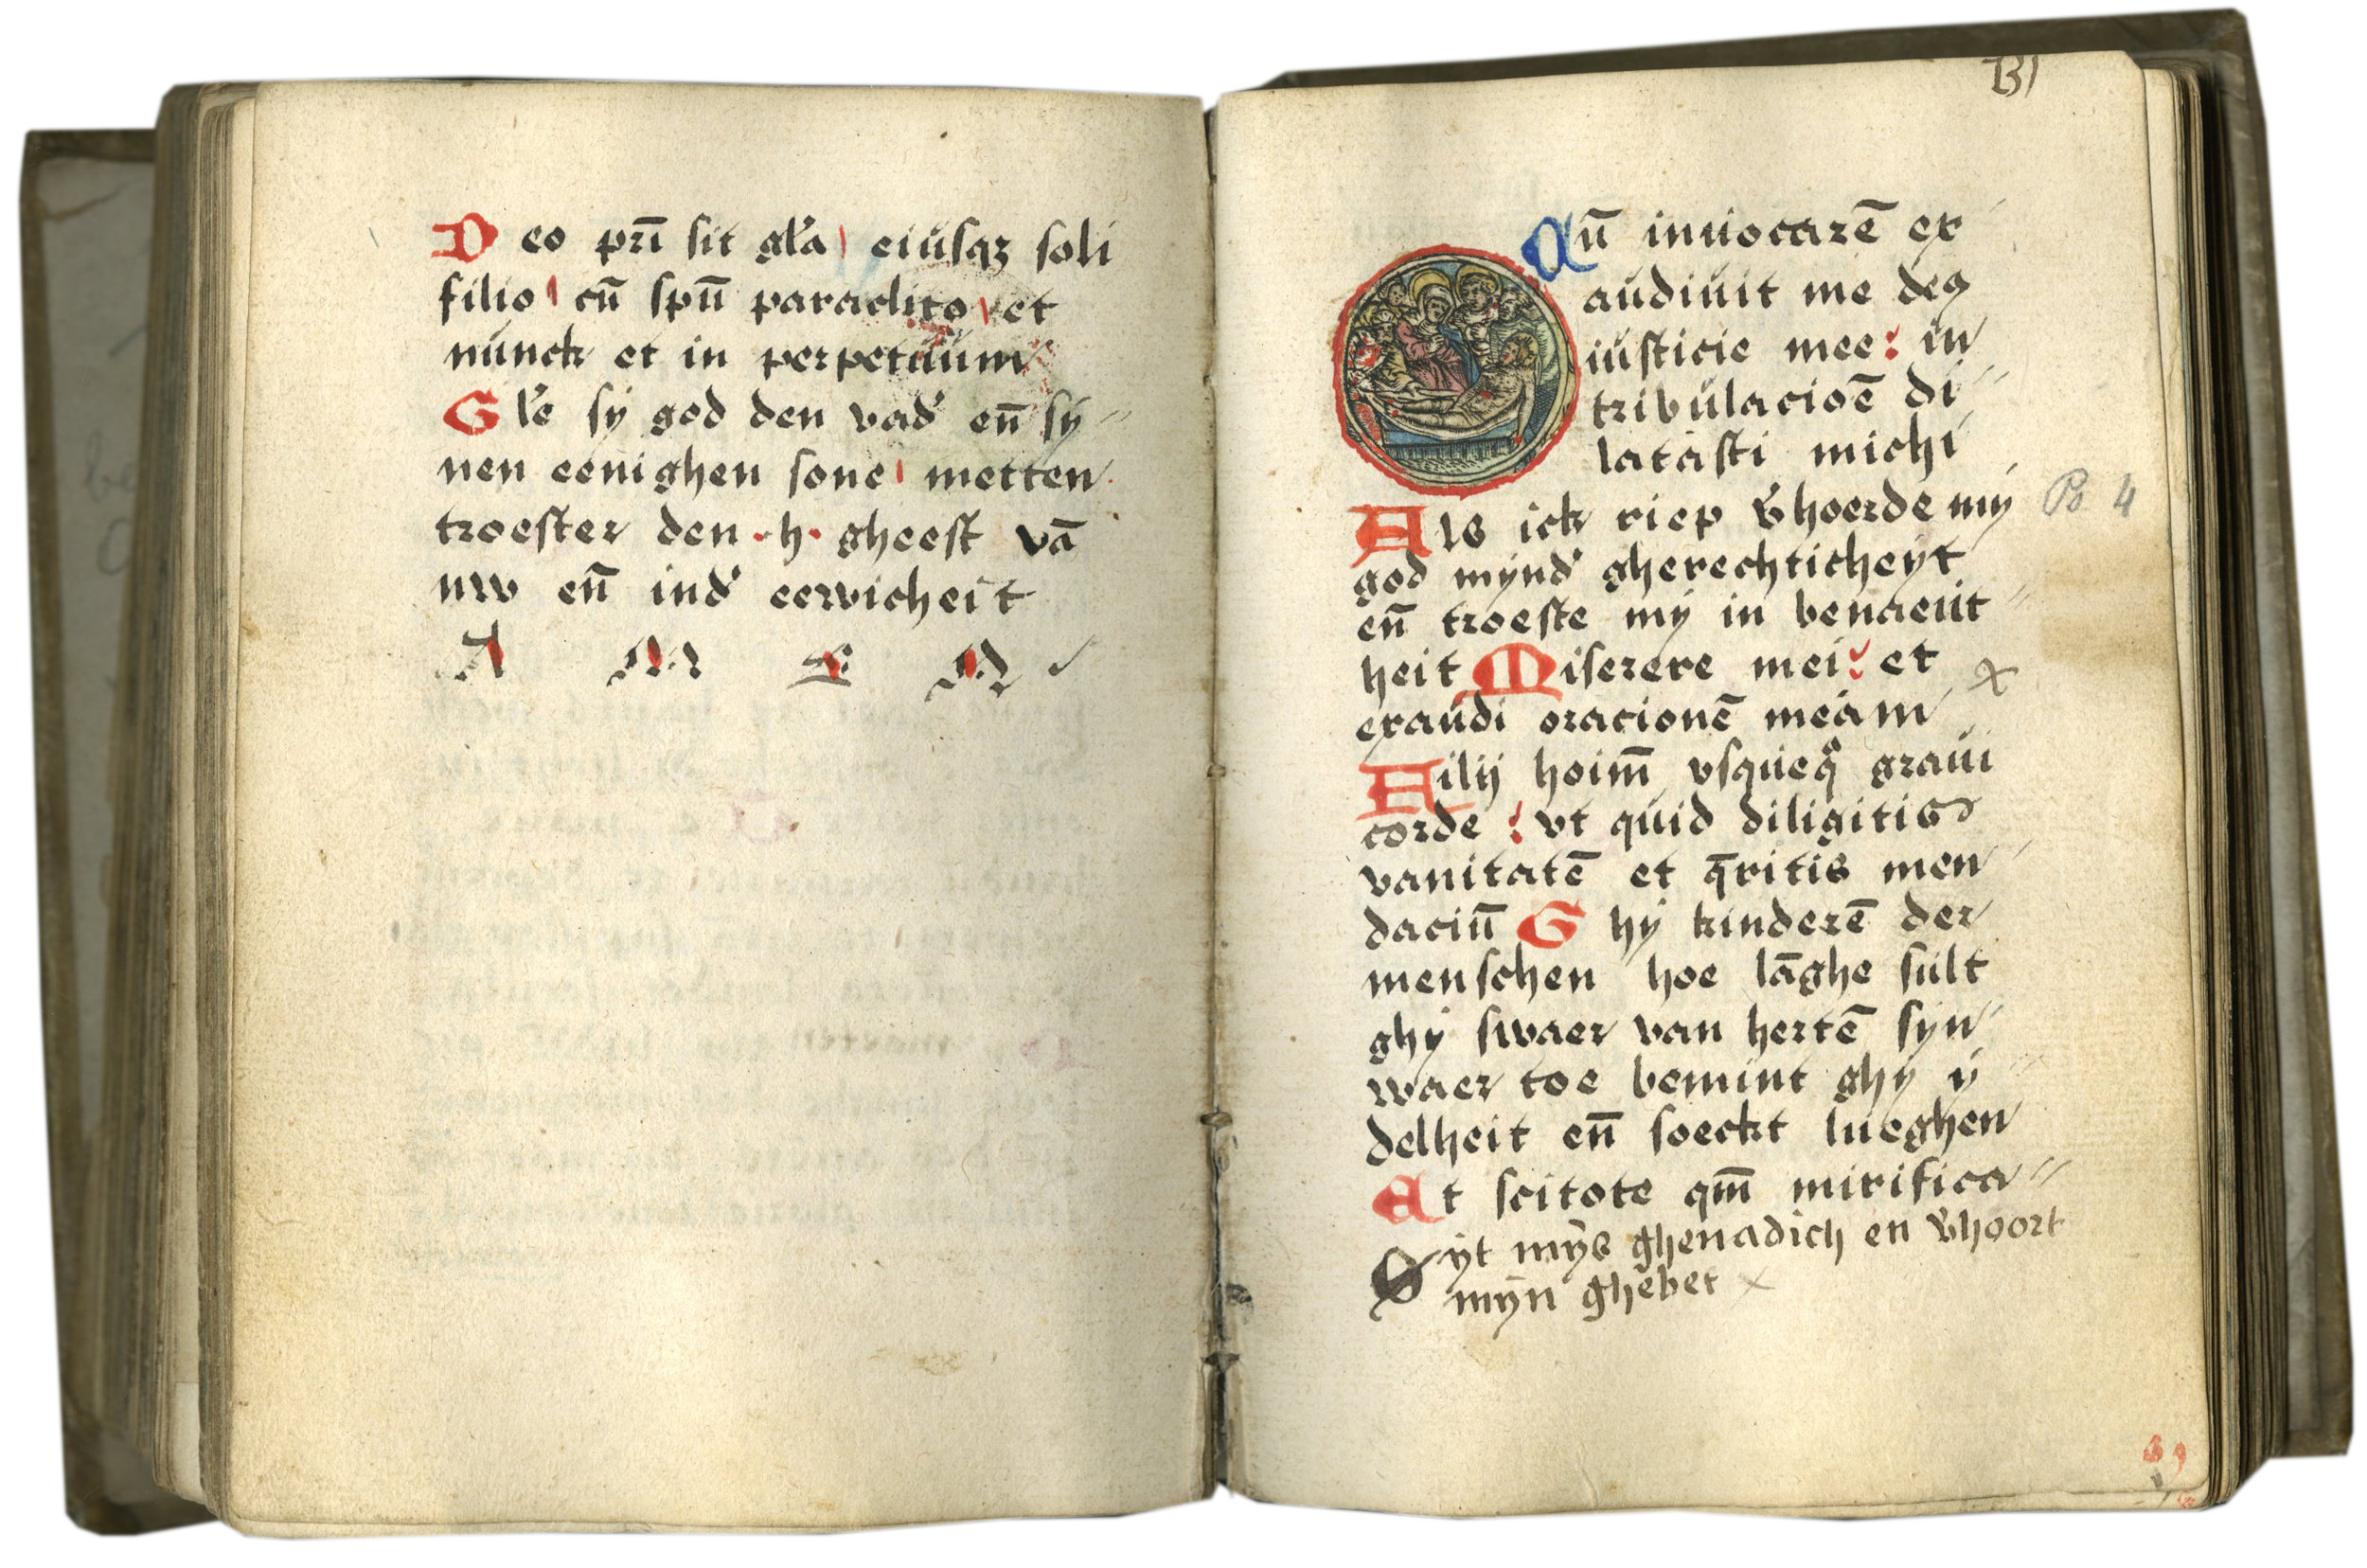 Deo pr̄i sit gl'a eiusqꝫ soli
filio cū spū paraclito et
nunck et in perpetuum
Gl'e sij god den vad' en̄ sij
nen eenighen sone metten
troester den · h · gheest vā
nw en̄ ind' eewicheit
A M E N
131
Qū inuocarē ex
audiuit me deꝯ
iusticie mee : in
tribulacioē di
latasti michi
Als ick riep v'hoerde mij
Ps 4
god mijnd' gherechticheyt
en̄ troeste mij in benaeut
heit Miserere mei : et
x
exaudi oracionē meam
Filij hoim̄ vsquequa graui
corde : vt quid diligitis
vanitatē et q̄ritis men
daciū Ghij kinderē der
menschen hoe lāghe sult
ghij swaer van hertē sijn
waer toe bemint ghij ij
delheit en̄ soeckt lueghen
Et scitote qm̄ mirifica
Sijt mijs ghenadich en v'hoort
mijn ghebet x